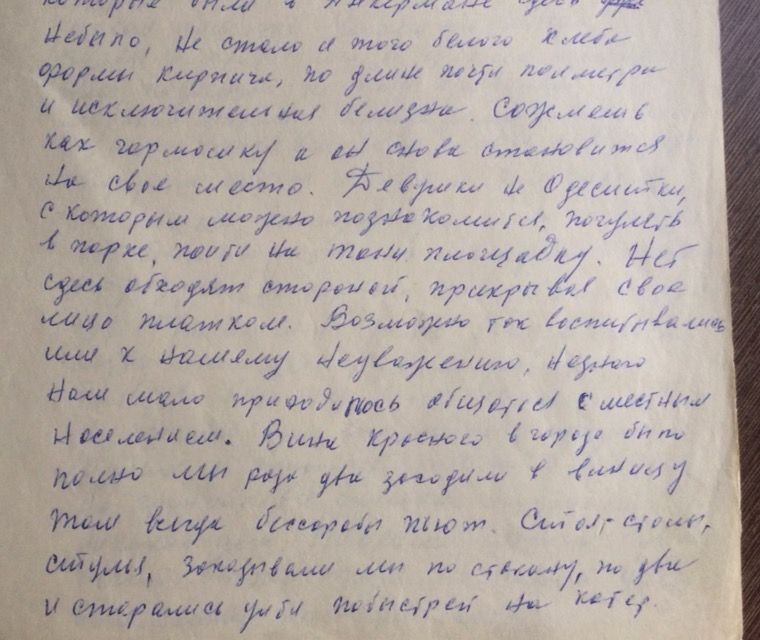 которые были в Аккермане здесь
небыло, не стало и того белого хлеба
формы кирпича, по длине почти полметра
и исключительная белизна. Сожмешь
как гармошку а он снова становится
на свое место. Девушки не Одеситки,
с которым можно познакомится, погулять
в парке, пойти на танц площадку. Нет
здесь обходят стороной, прикрывая свое
лицо платком. Возможно так воспитывались
или к нашему неуважению, незнаю
нам мало приходилось общатся с местным
населением. Вина красного в городе было
полно мы раза два заходили в винницу
там всегда бессарабы пьют. Стоят столы,
стулья, заказывали мы по стакану, по два
и старались уйти побыстрей на катер.